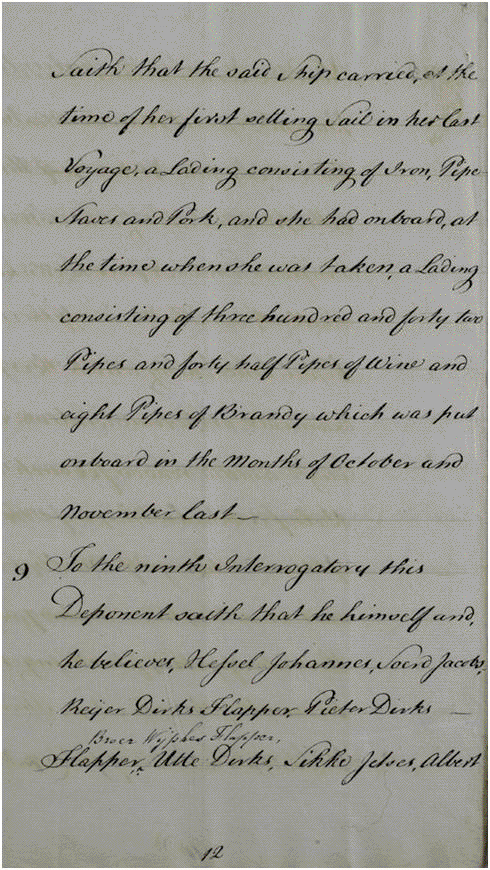 Saith that the said Ship carried, at the
time of her first selling Sail in her last
Voyage, a Lading consisting of Iron, Pipe
Staves and Pork, and she had onboard, at
the time when she was taken, a Lading
consisting of three hundred and forty two
Pipes and forty half Pipes of Wine and
eight Pipes of Brandy which was put
onboard in the Months of October and
November last
9 To the ninth Interrogatory this
Deponent saith that he himself and,
he believes, Hessel Johannes, Soerd Jacobs,
Reijer Dirks Flapper, Pieter Dirks
Broer Wyphes Flapper,
Flapper, Utte Dirks, Sikke Jelses, Albert
12